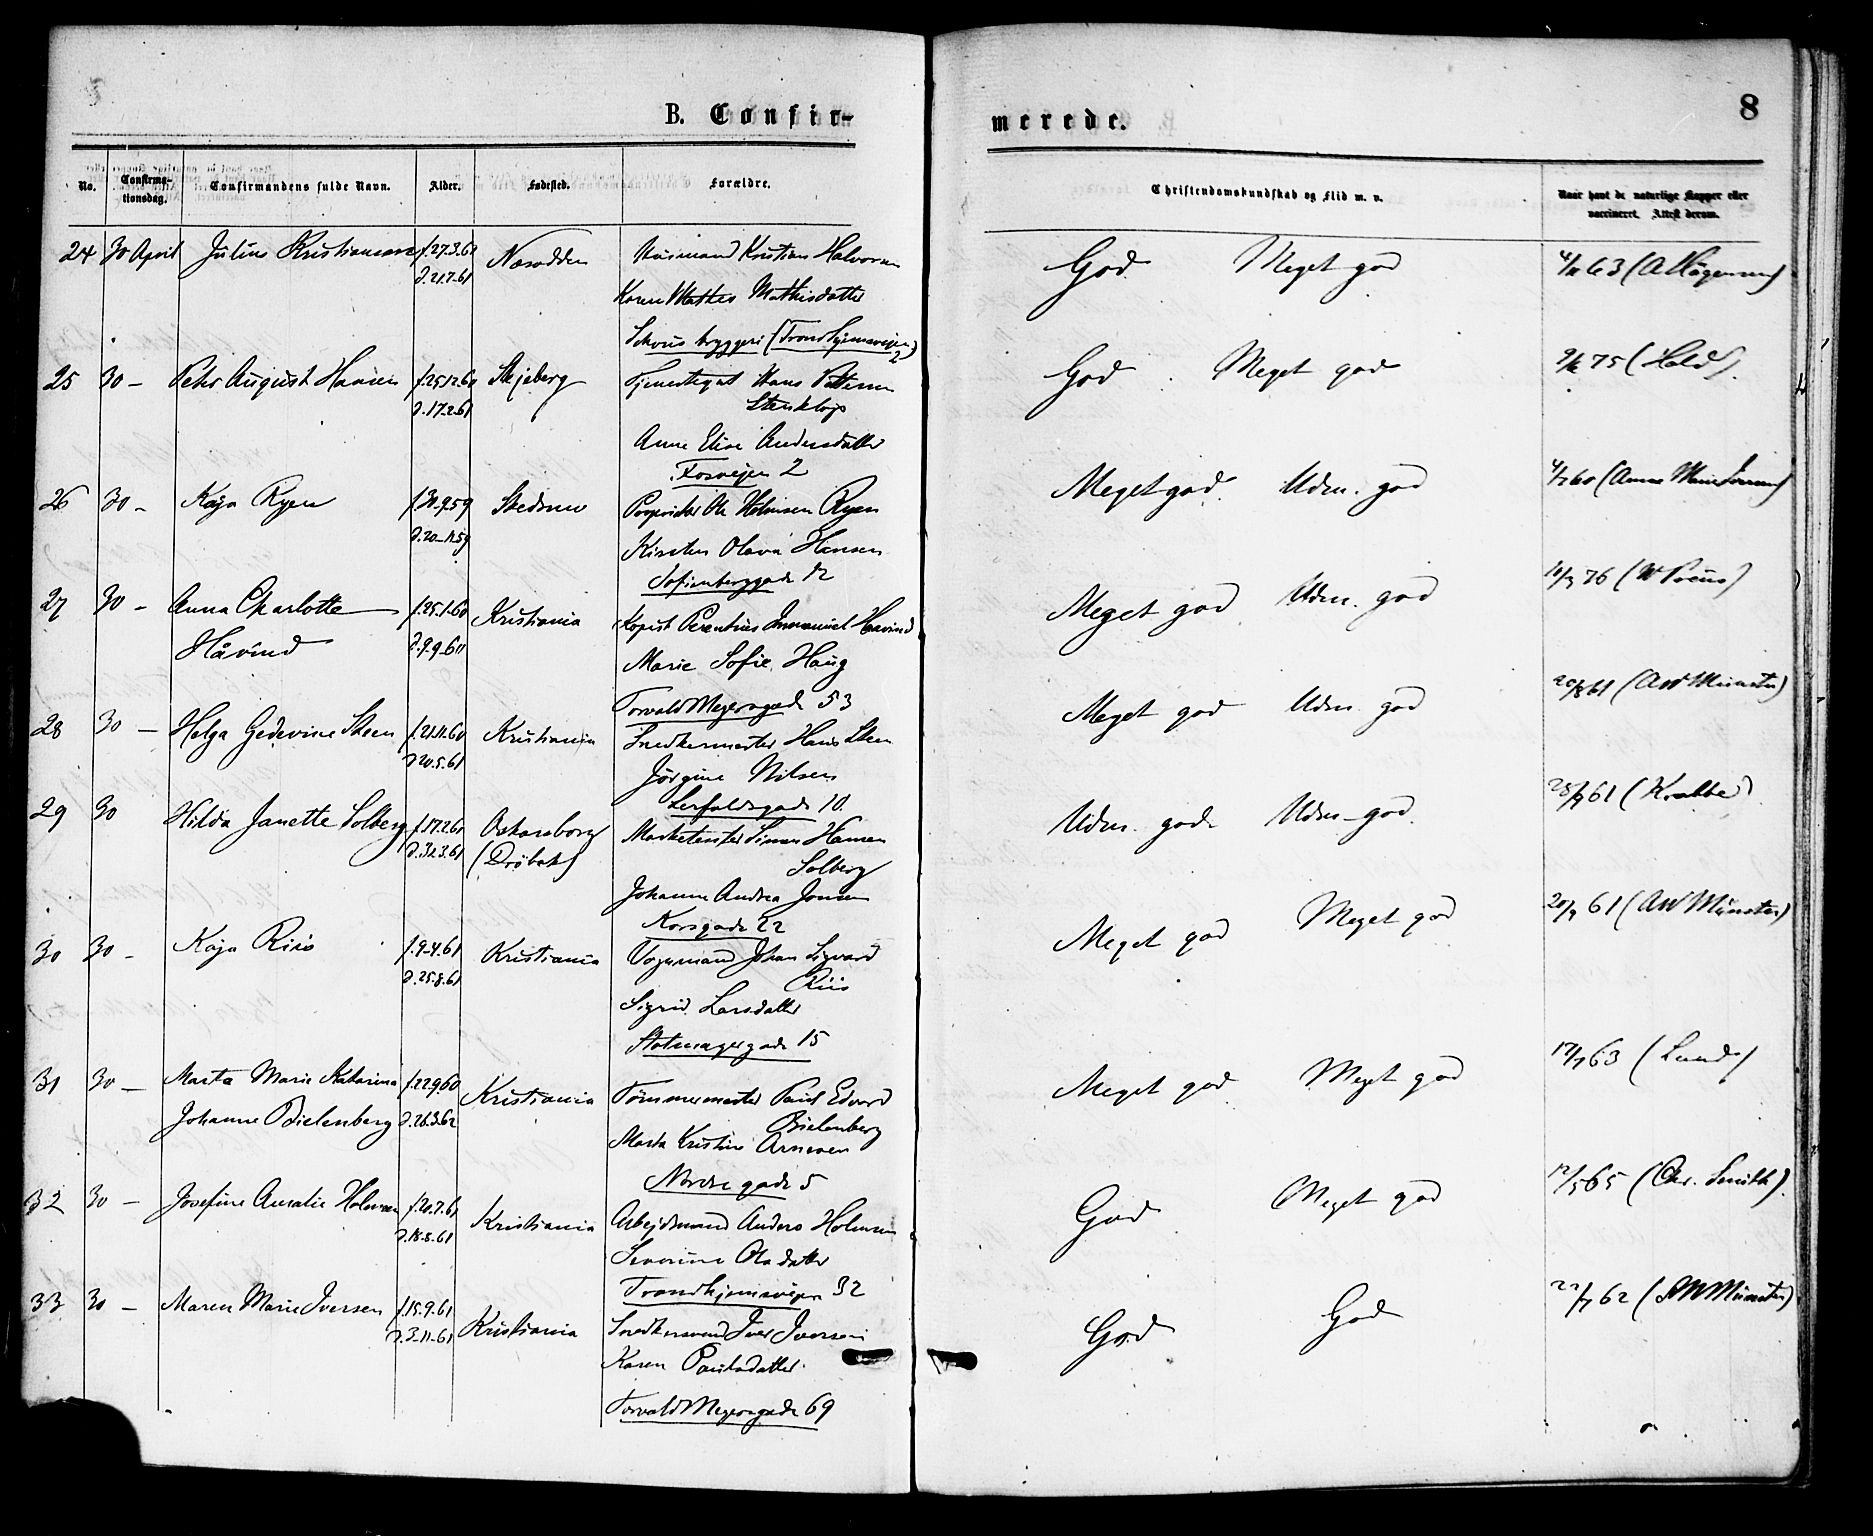 B. Confir-
merede.
8
No.
Confirma-
tionsdag.
Confirmandens fulde Navn.
Alder.
Fødested.
Forældre.
Christendomskundskab og Flid m. v.
Naar havt de naturlige Kopper eller
vaccineret. Attest derom.
24 30 April Julius Kristiansen f.27.3.61 Næsodden Husmand Kristian Halvorsen God. Meget god
d.21.7.61
Karen Mathea Mathisdatter
Schous bryggeri (Trondhjemsvejen
2)
25 30 - Peter August Hansen f.25.12.60 Skjeberg Tjenestegut Hans Petersen God. Meget god 75 (Hald).
d.17.2.61
Anne Elise Andersdatter
Fosvejen 2
26 30 - Kaja Ryen f.30.9.59 Skedsmo Ole Ryen Meget god. Udm. god 60
d.20-11.59
Kirsten Olava Hansen
Sofienberggade 12
27 30 - Anna Charlotte f.25.1.60 Kristiania Kopist Immanuel Haavind Meget god Udm. god 76
Håvind d.9.9.60
Marie Sofie Haug
Torvald Meyersgade 53
28 30 - Helga Gedevine Steen f.21.11.60 Kristiania Snedkermester Hans Steen Meget god Udm. god 20/8 61 (AW Münster)
d.20.5.61
Jørgine Nilsen
Lerfaldsgade 10.
29 30 Hilda Janette Solberg f.17.2.61 Oskarsborg Marketenter Simen Hansen Udm. god. Udm. god. 61 (Krabbe)
(Drøbak)
Solberg
Johanne Andrea Jonsen
Korsgade 22
30 30 - Kaja Riis f.9.4.61 Kristiania Vognmand Johan Sigvard Meget god Meget god 61 (AW Münster)
d.25.8.61
Riis
Sigrid Larsdatter
Slotmagergade 15
31 30 - Marta Marie Katarina f.22.9.60 Kristiania Tømmermester Paul Edvard Meget god Meget god 63 (Lund)
Johanne Bielenberg d.26.3.62
Bielenberg
Marta Kristine Arnesen
Nordregade 5
32 30 - Josefine Amalie Holmsen f.20.7.61 Kristiania Arbejdsmand Anders Holmsen God Meget god 12/5 65 (Chr. Smith).
d.18.8.61
Severine Oladatter
Trondhjemsvejen 32
33 30 - Maren Marie Iversen f.15.9.61 Kristiania Snedkersvend Iver Iversen God God 62 (AW Münster)
d.3-11-61
Karen Paulsdatter
Torvald Meyersgade 69